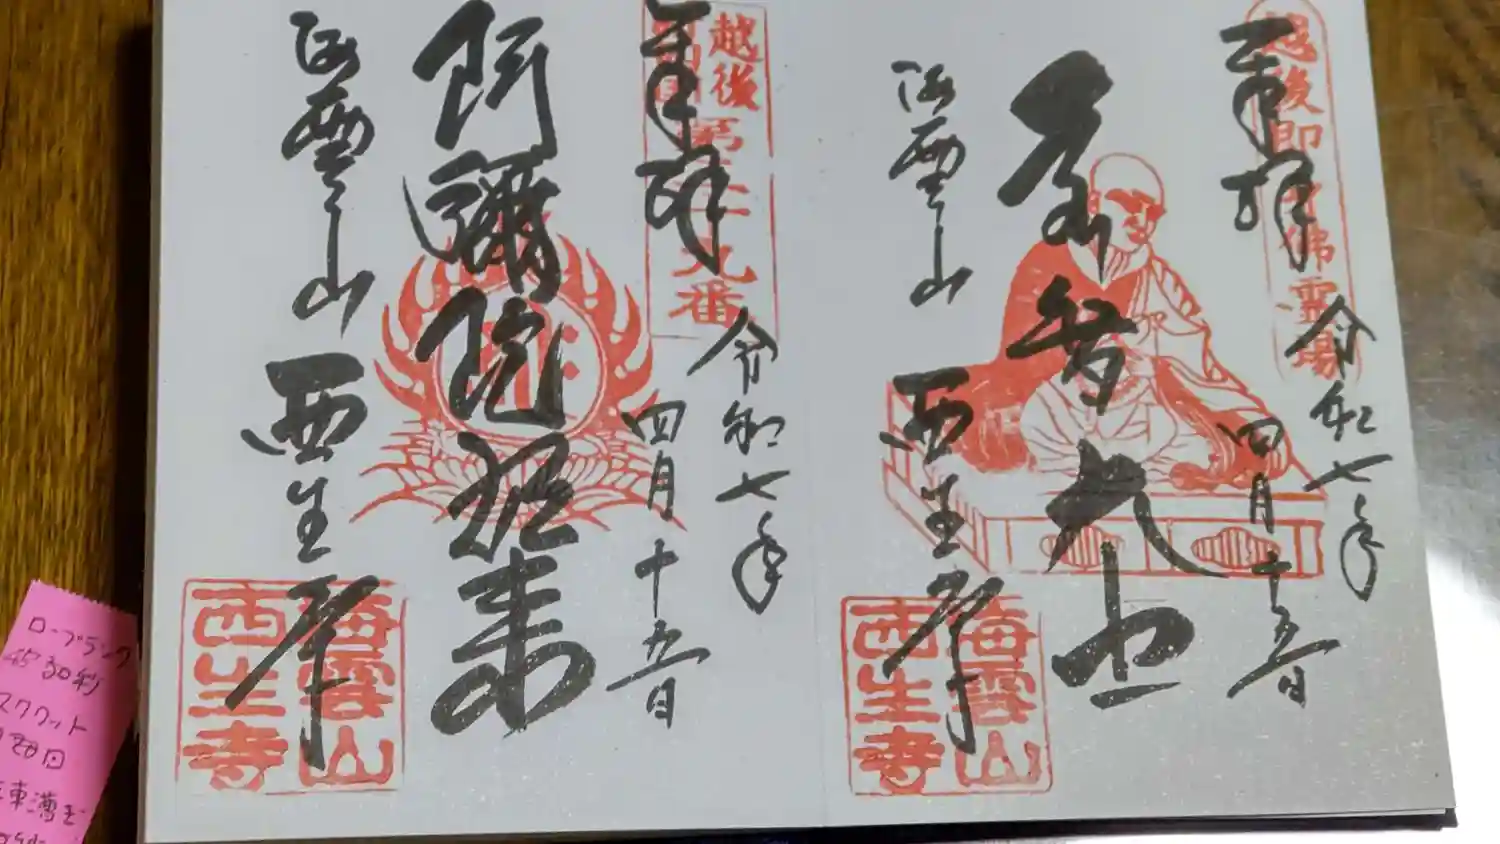 越後即身佛霊場
奉拝
令和七年
四月十五日
弘智大士
海雲山
西生寺
海雲山
西生寺
越後
第二十九番
奉拝
令和七年
四月十五日
阿彌陀如来
海雲山
西生寺
海雲山
西生寺
ロープランク
45 30秒
スクワット